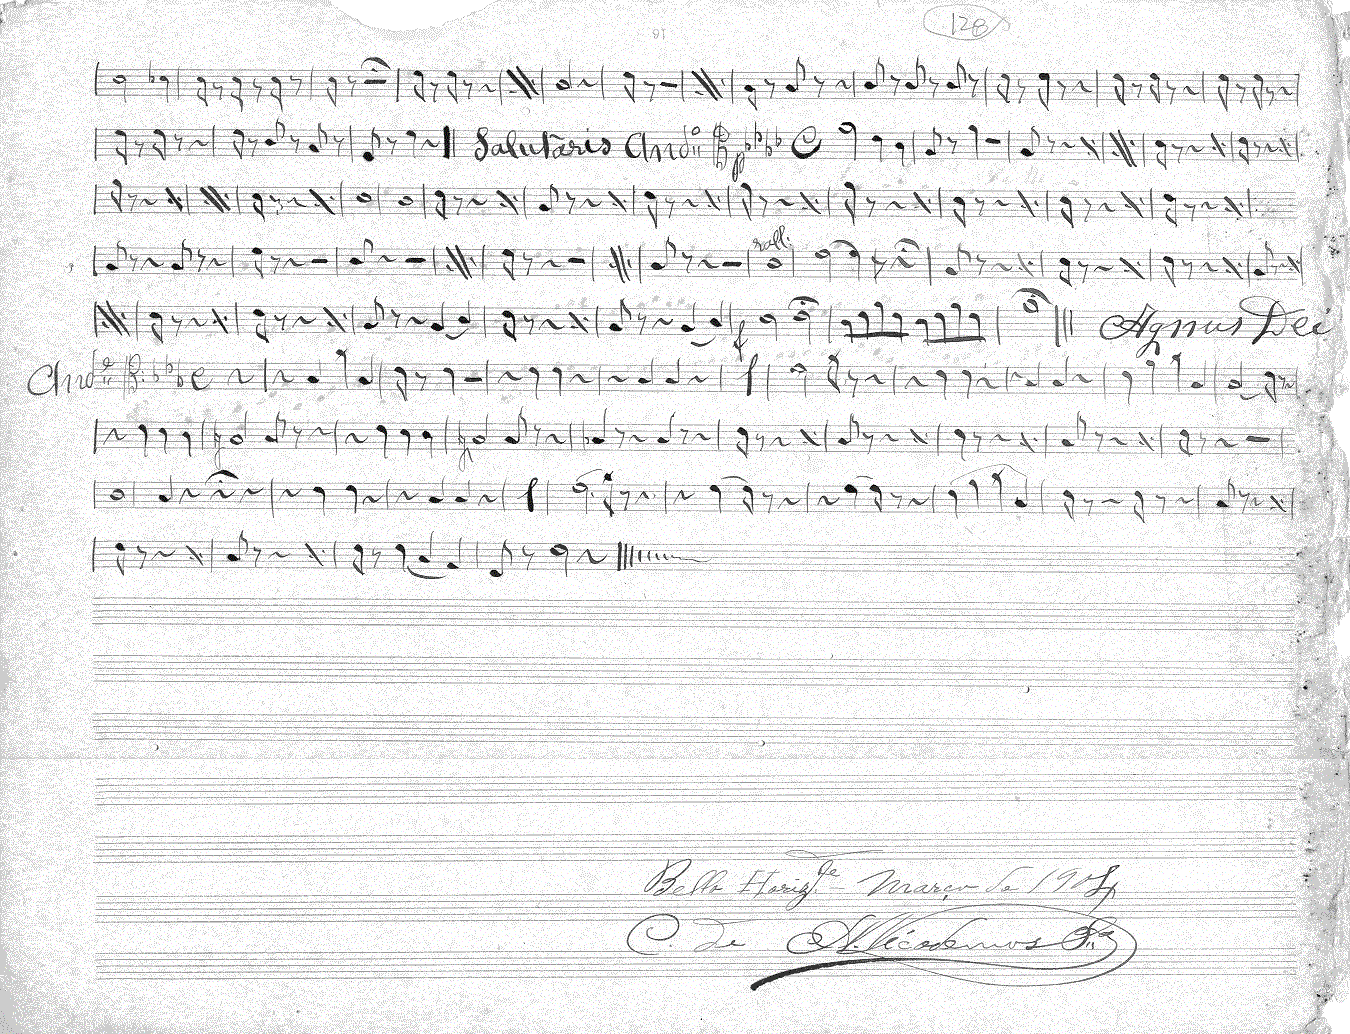 128
16
Salutaris And.
p
rall.
f
Agnus Dei
And.
f
f
Bello Horiz.te - Março de 1904
C. de A. Nicodemos